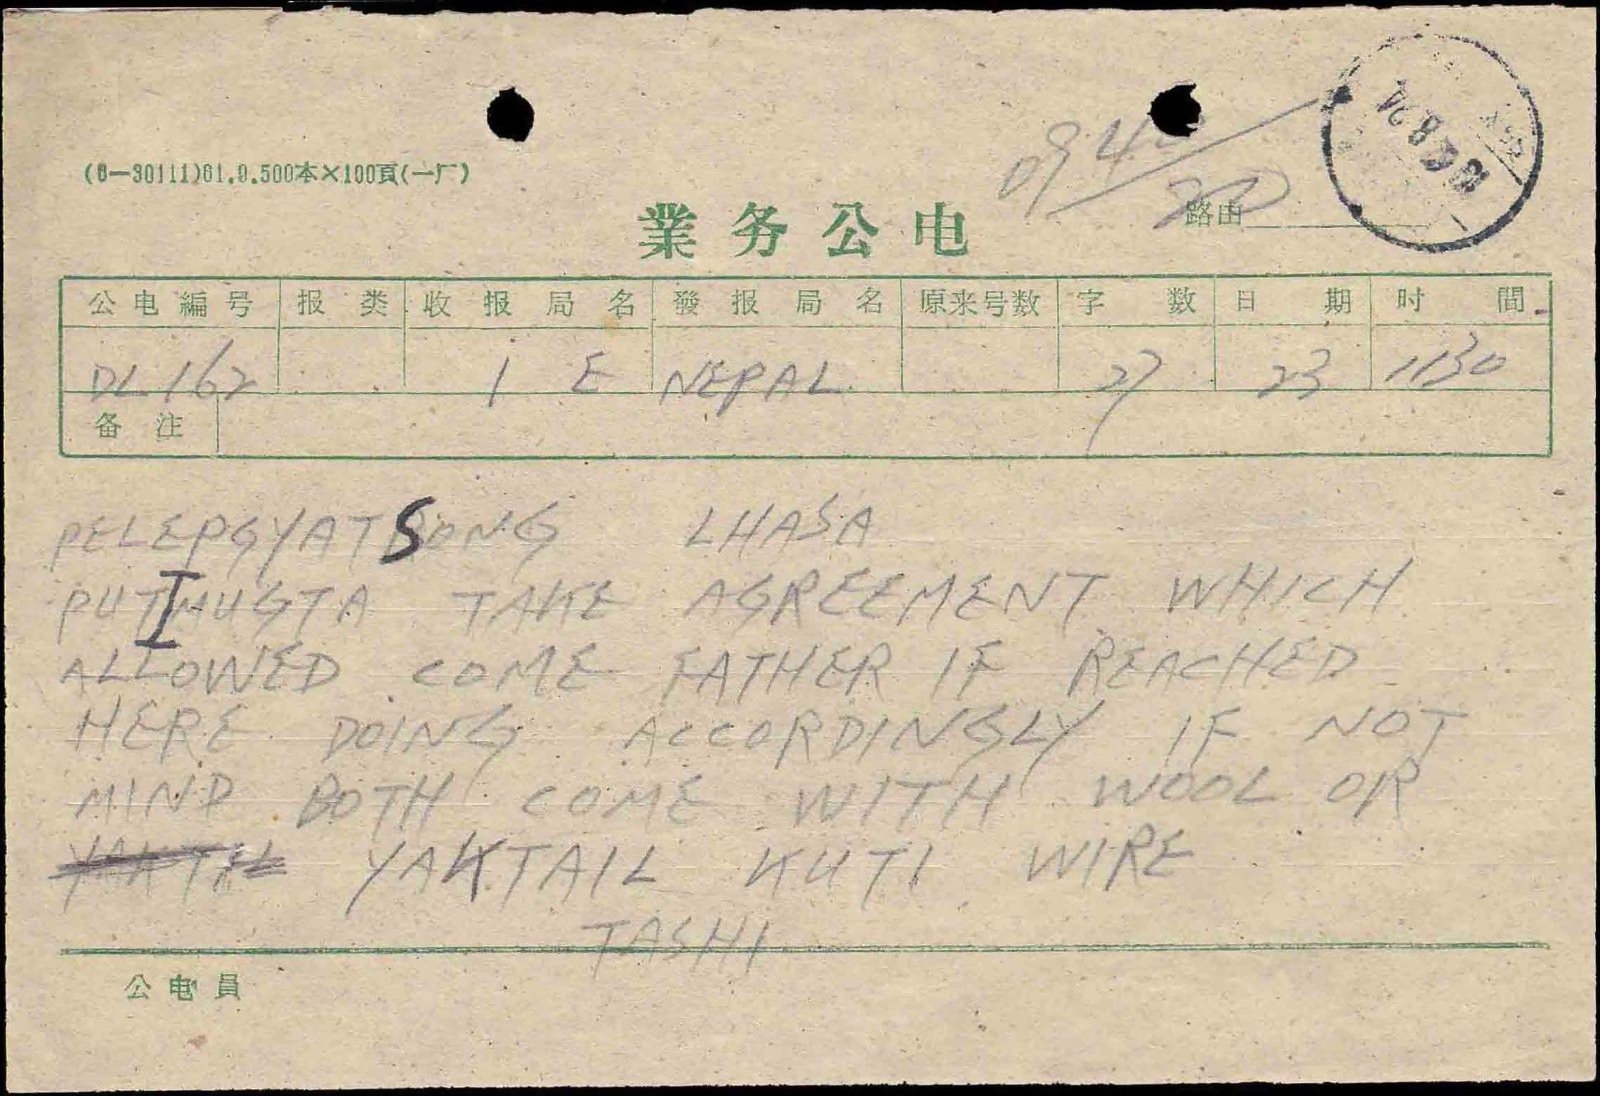 (6—30111)61.9.500本×100頁(一厂)
0940
業务公电
路由
公电編号 报类 收报局名 發报局名 原来号数 字数 日期 时間
DL162 1 E NEPAL 27 23 1130
备注
PELEPGYATSONG LHASA
PUTIHUGTA TAKE AGREEMENT WHICH
ALLOWED COME FATHER IF REACHED
HERE DOING ACCORDINGLY IF NOT
MIND BOTH COME WITH WOOL OR
YAKTAIL KUTI WIRE
TASHI
公电員